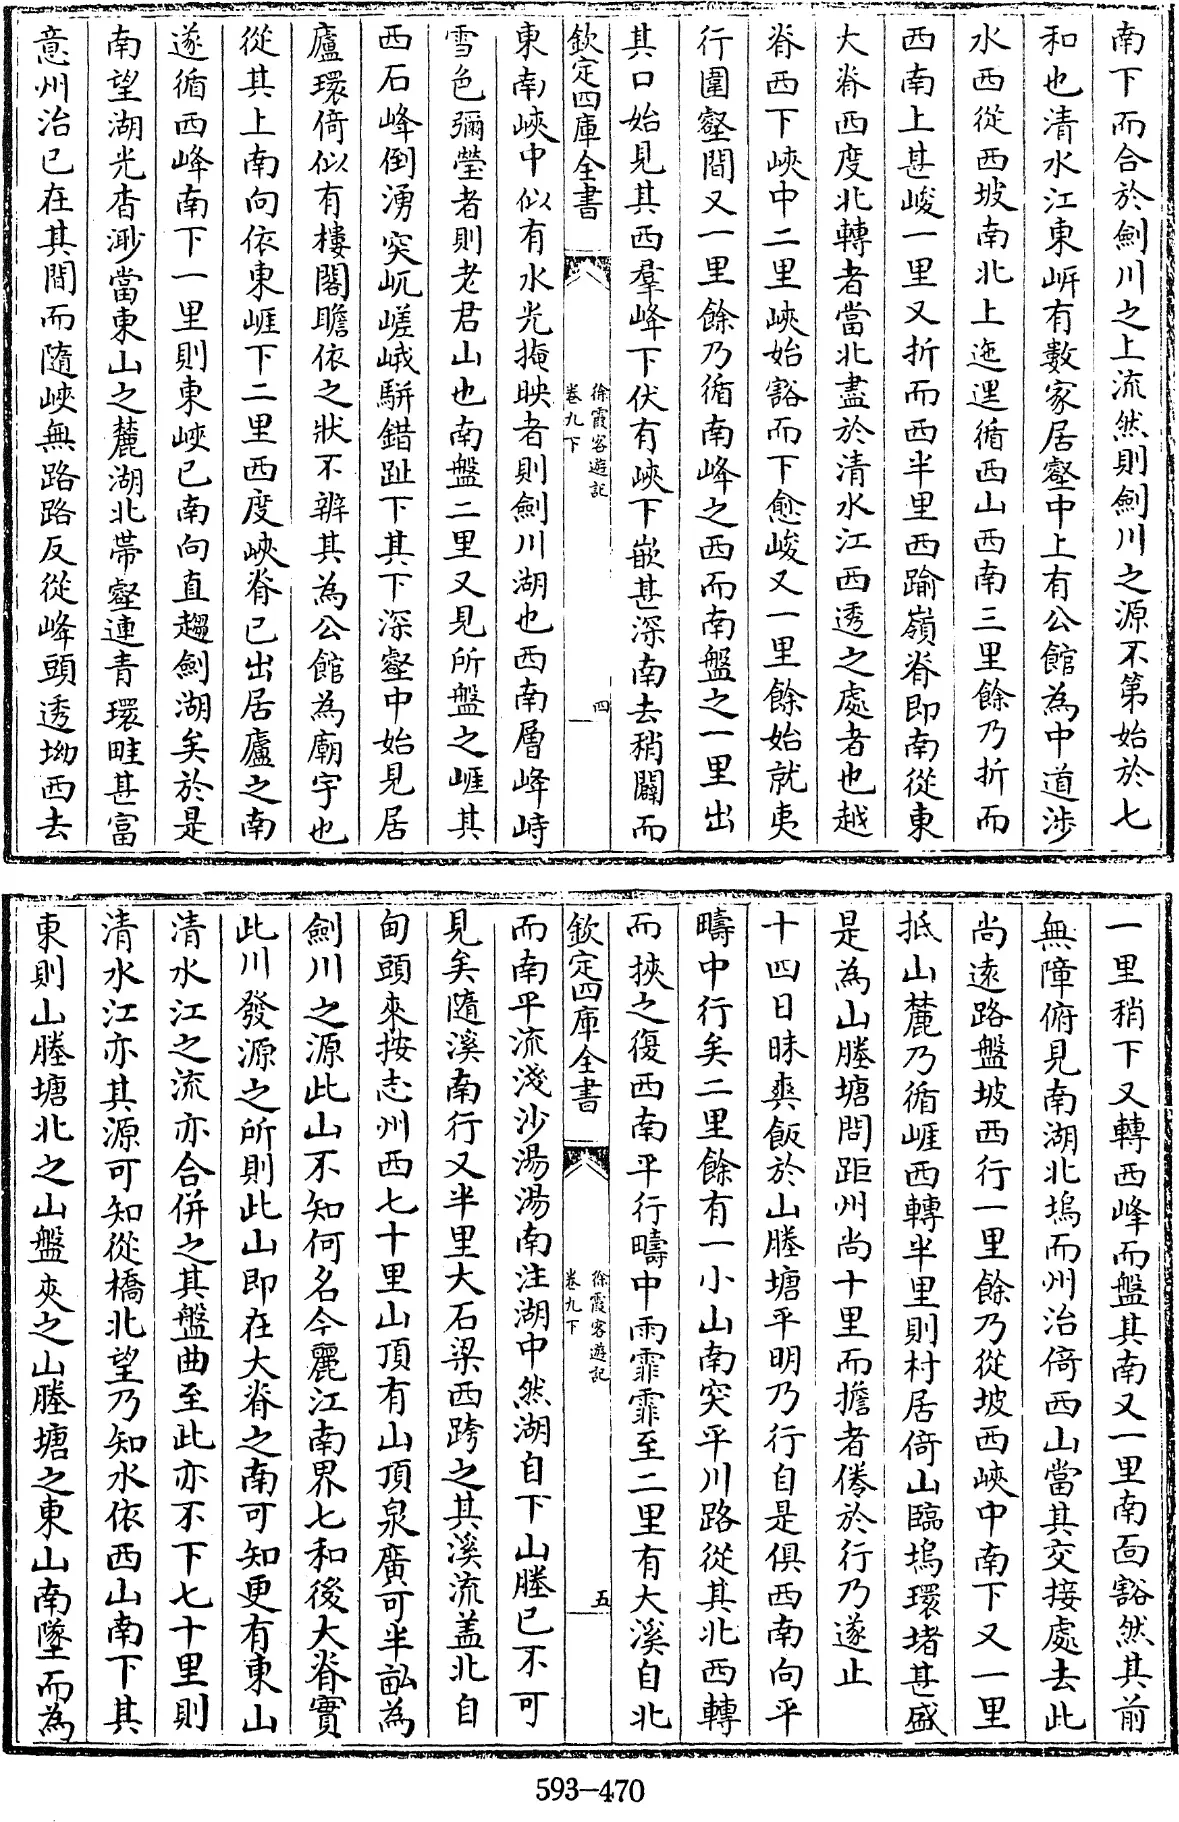 南下而合於劍川之上流然則劍川之源不第始於七
和也清水江東㟁有數家居壑中上有公館為中道涉
水西從西坡南北上迤邐循西山西南三里餘乃折而
西南上甚峻一里又折而西半里西踰嶺脊即南從東
大脊西度北轉者當北盡於清水江西透之處者也越
脊西下峽中二里峽始豁而下愈峻又一里餘始就夷
行圍壑間又一里餘乃循南峰之西而南盤之一里出
其口始見其西羣峰下伏有峽下嵌甚深南去稍闢而
欽定四庫全書
徐霞客遊記
卷九下
四
東南峽中似有水光掩映者則劍川湖也西南層峰峙
雪色彌瑩者則老君山也南盤二里又見所盤之崕其
西石峰倒湧突屼嵯峨駢錯趾下其下深壑中始見居
廬環倚似有樓閣瞻依之狀不辨其為公館為廟宇也
從其上南向依東崕下二里西度峽脊已出居廬之南
遂循西峰南下一里則東峽已南向直趨劍湖矣於是
南望湖光杳渺當東山之麓湖北帶壑連青環畦甚富
意州治已在其間而隨峽無路路反從峰頭透坳西去
一里稍下又轉西峰而盤其南又一里南面豁然其前
無障俯見南湖北塢而州治倚西山當其交接處去此
尚遠路盤坡西行一里餘乃從坡西峽中南下又一里
抵山麓乃循崕西轉半里則村居倚山臨塢環堵甚盛
是為山塍塘問距州尚十里而擔者倦於行乃遂止
十四日昧爽飯於山塍塘平明乃行自是俱西南向平
疇中行矣二里餘有一小山南突平川路從其北西轉
而挾之復西南平行疇中雨霏霏至二里有大溪自北
欽定四庫全書
徐霞客遊記
卷九下
五
而南平流淺沙湯湯南注湖中然湖自下山塍已不可
見矣隨溪南行又半里大石梁西跨之其溪流盖北自
甸頭來按志州西七十里山頂有山頂泉廣可半畝為
劍川之源此山不知何名今麗江南界七和後大脊實
此川發源之所則此山即在大脊之南可知更有東山
清水江之流亦合併之其盤曲至此亦不下七十里則
清水江亦其源可知從橋北望乃知水依西山南下其
東則山塍塘北之山盤夾之山塍塘之東山南墜而為
593-470